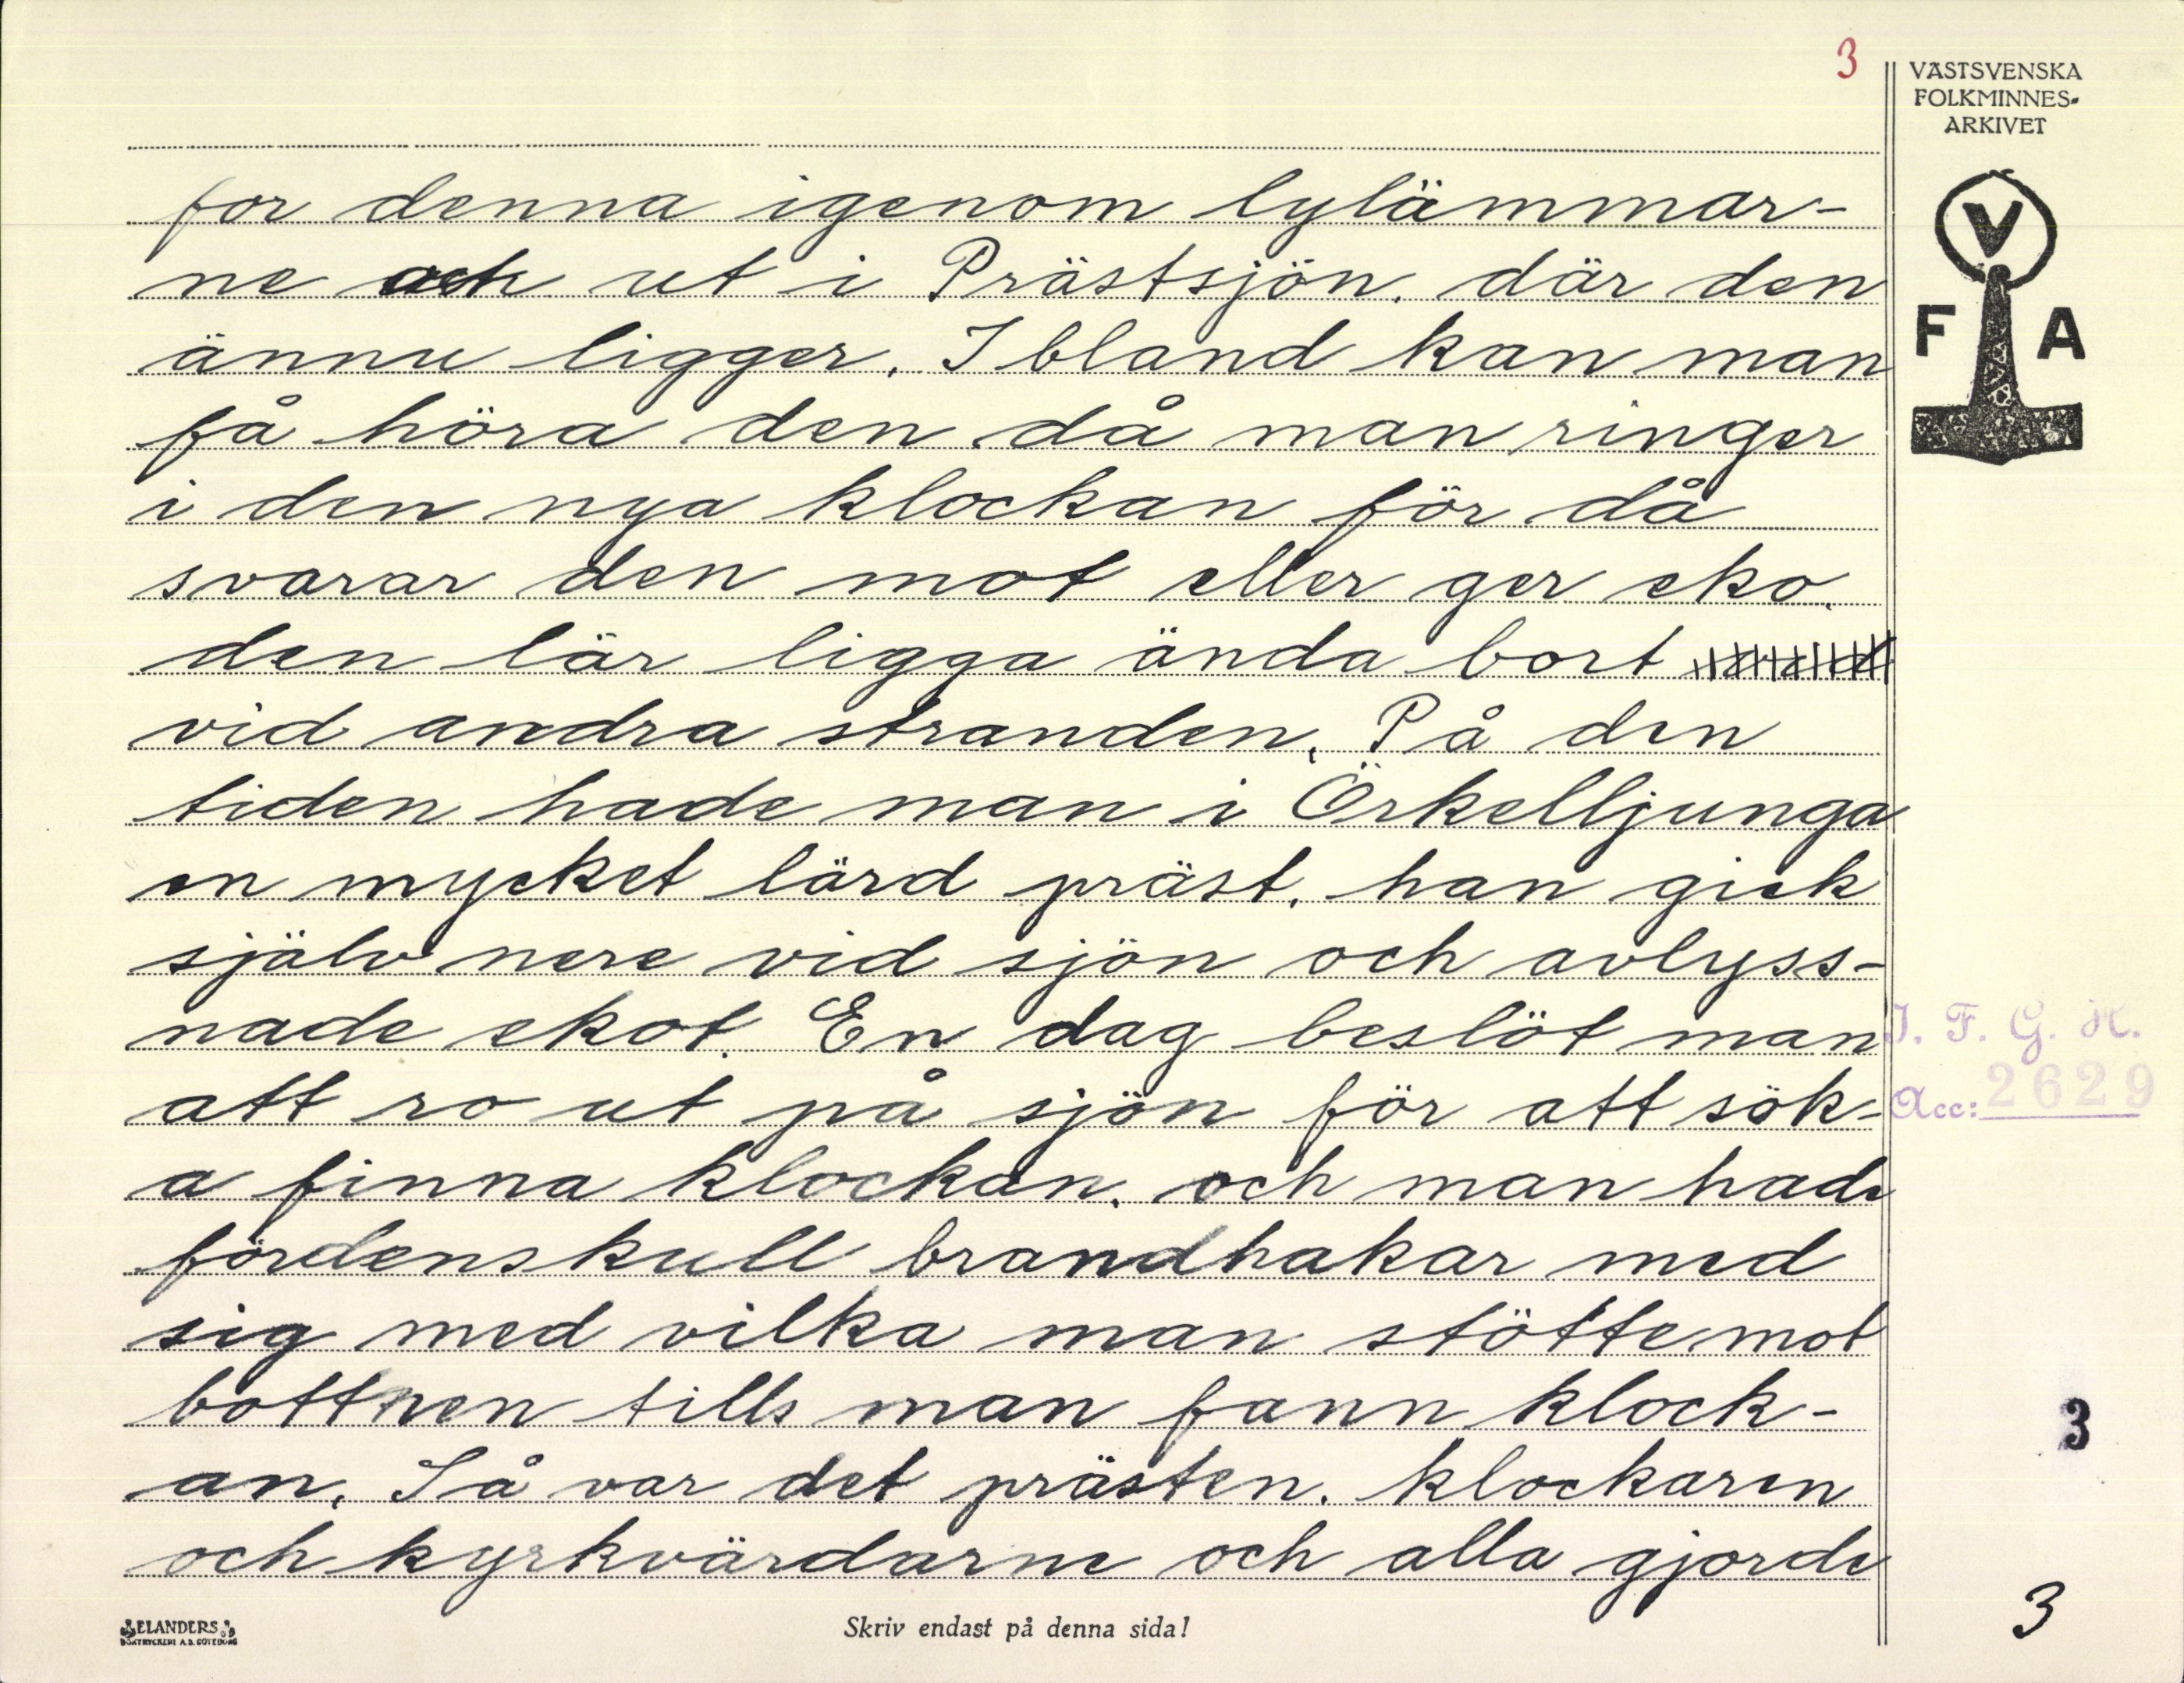 3
VÄSTSVENSKA
FOLKMINNES-
ARKIVET
V
F A
for denna igenom lylämmar-
ne och ut i Prästsjön. där den
ännu ligger. Ibland kan man
få höra den då man ringer
i den nya klockan för då
svarar den mot eller ger eko.
den lär ligga ända bort
vid andra stranden. På den
tiden hade man i Örkelljunga
en mycket lärd präst. han gick
själv nere vid sjön och avlyss-
nade ekot. En dag beslöt man
I. F. G. H.
att ro ut på sjön för att sök-
Acc: 2629
a finna klockan. och man hade
fördenskull brandhakar med
sig med vilka man stötte mot
bottnen tills man fann klock-
3
an. Så var det prästen. klockaren
och kyrkvärdarne och alla gjorde
3
ELANDERS
BOKTRYCKERI A.B. GÖTEBORG
Skriv endast på denna sida!